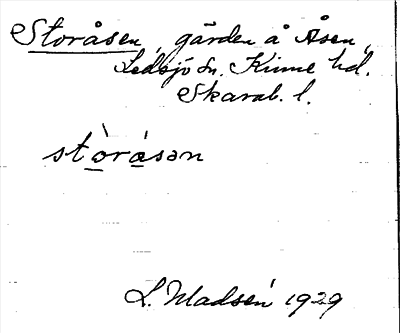 Storåsen, gården å Åsen,
Ledsjö sn. Kinne hd.
Skarab. l.
stòràsən
L. Madsén 1929